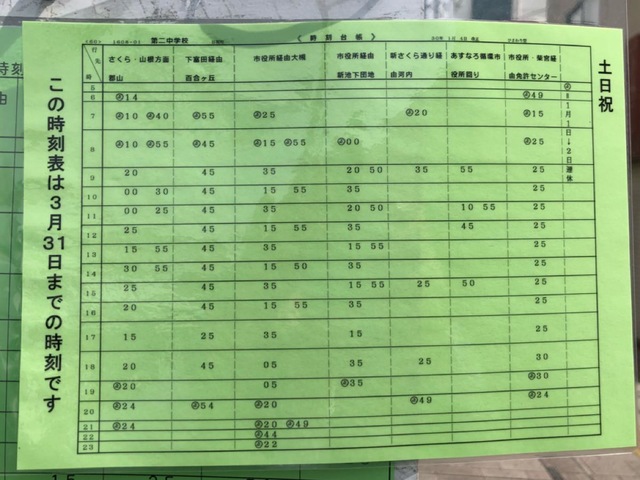 第二中学校 《 時 刻 台 帳 》
土日祝
この時刻表は3月31日までの時刻です
行先 さくら・山根方面 下富田経由 市役所経由大幡 市役所経由 新さくら通り経 あすなろ循環市
時 郡山 百合ヶ丘 新池下団地 由河内 役所回り 由免許センター
5
6 14 49
7 10 40 55 25 20 15
8 10 55 45 15 55 00 25
9 20 45 35 20 50 35 55 25
10 00 30 45 15 55 35 25
11 00 25 45 35 20 50 10 55 25
12 25 45 15 55 35 45 25
13 15 55 45 35 15 55 25
14 30 55 45 15 50 35 25
15 25 45 35 15 55 25 50 25
16 20 45 15 55 35 25
17 15 25 35 15 25
18 20 45 05 35 25 30
19 20 05 35 30
20 24 54 20 49 24
21 24 20 49
22 44
23 22
1月1日→2日運休